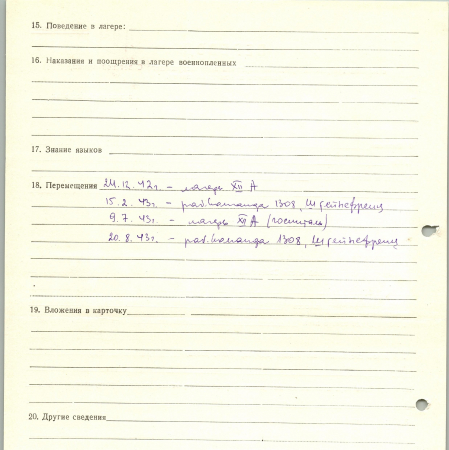 15. Поведение в лагере:
16. Наказания и поощрения в лагере военнопленных
17. Знание языков
18. Перемещения 24.12.42г. – лагерь XII А
15.2.43г. – раб.команда 1308,
9.7.43г. – лагерь XII А (госпиталь)
20.8.43г. – раб.команда 1308,
19. Вложения в карточку
20. Другие сведения